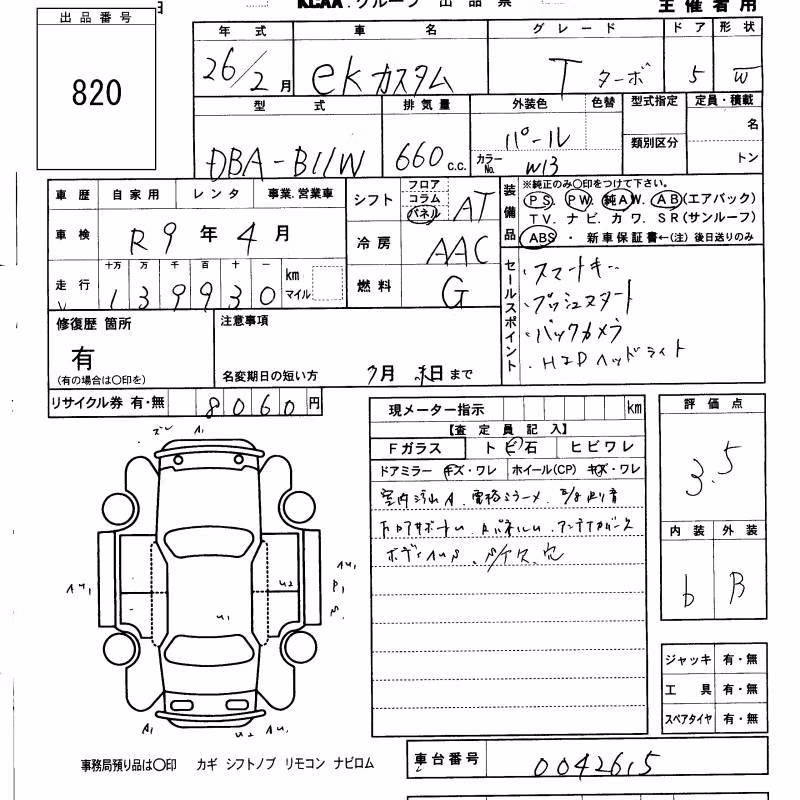 KCAA.グループ 出品票
主催者用
出品番号
820
年式 車名 グレード ドア 形状
26/2月 ekカスタム T ターボ 5 W
型式 排気量 外装色 色替 型式指定 定員・積載
DBA-B11W 660 c.c. パール 類別区分 名
カラーNo. W13 トン
車歴 自家用 レンタ 事業.営業車
車検 R9年4月
走行 十万 万 千 百 十 一 km マイル
139930
シフト フロア コラム パネル AT
冷房 AAC
燃料 G
装備品 ※純正のみ○印をつけて下さい。
PS. PW. 純AW. AB(エアバック)
TV. ナビ. カワ. SR(サンルーフ)
ABS ・ 新車保証書←(注) 後日送りのみ
セールスポイント
・スマートキー
・プッシュスタート
・バックカメラ
・HIDヘッドライト
修復歴 箇所
有
(有の場合は○印を)
注意事項
名変期日の短い方 月 末日まで
リサイクル券 有・無 8060円
現メーター指示 km
【査定員記入】
Fガラス ト ビ 石 ヒビワレ
ドアミラー キズ・ワレ ホイール(CP) キズ・ワレ
室内汚れA. 電格ミラー
ボディ
評価点
3.5
内装 外装
b B
ズレ A1
AU1 U2 AU1
U1 P1
A1 U2 AU1
ジャッキ 有・無
工具 有・無
スペアタイヤ 有・無
事務局預り品は○印 カギ シフトノブ リモコン ナビロム
車台番号 0042615